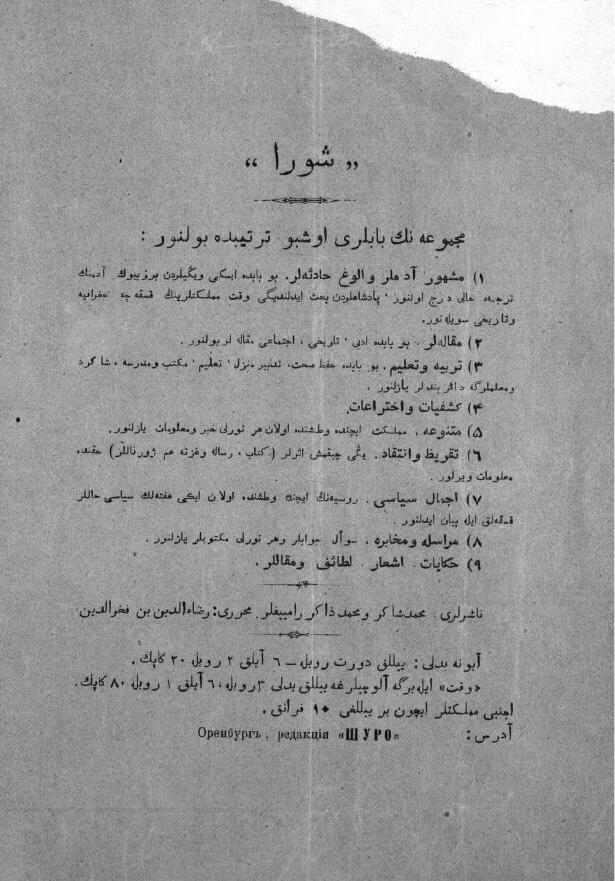 « شورا »
مجموعه نك بابلری اوشبو ترتیبده بولنور :
۱) مشهور آدملر والوغ حادثه‌لر. بو بابده ایسكی ویڭیلردن برر بیوك آدمنڭ
ترجمه حالی درج اولنور، پادشاهلردن بحث ایدلندیگی وقت مملكتلرینڭ قسقه‌چه جغرافیه
وتاریخی سویله‌نور.
۲) مقاله‌لر. بو بابده ادبی، تاریخی، اجتماعی مقاله لر بولنور.
۳) تربیه وتعلیم. بو بابده حفظ صحت، تدبیر منزل، تعلیم، مكتب ومدرسه، شاكرد
ومعلملرگه دائر بندلر یازلنور.
۴) كشفیات واختراعات.
۵) متنوعه. مملكت ایچنده وطشنده اولان هر تورلی خبر ومعلومات یازلنور.
۶) تقریظ وانتقاد. یڭی چیقمش اثرلر (كتاب، رساله وغزته هم ژورناللر) حقنده
معلومات ویرلور.
۷) اجمال سیاسی. روسیه‌نڭ ایچنده وطشنده اولان ایكی هفته‌لك سیاسی حاللر
قسقه‌لق ایله بیان ایدلنور.
۸) مراسله ومخابره. سوأل جوابلر وهر تورلی مكتوبلر یازلنور.
۹) حكایات. اشعار. لطائف ومقاللر.
ناشرلری: محمدشاكر ومحمدذاكر رامییفلر. محرری: رضاءالدین بن فخرالدین.
آبونه بدلی: ییللق دورت روبل – ۶ آیلق ۲ روبل ۲۰ كاپك.
«وقت» ایله برگه آلوچیلرغه ییللق بدلی ۳ روبل، ۶ آیلق ۱ روبل ۸۰ كاپك.
اجنبی مملكتلر ایچون بر ییللغی ۱۰ فرانق.
آدرس: Оренбургъ, редакція «ШУРО»